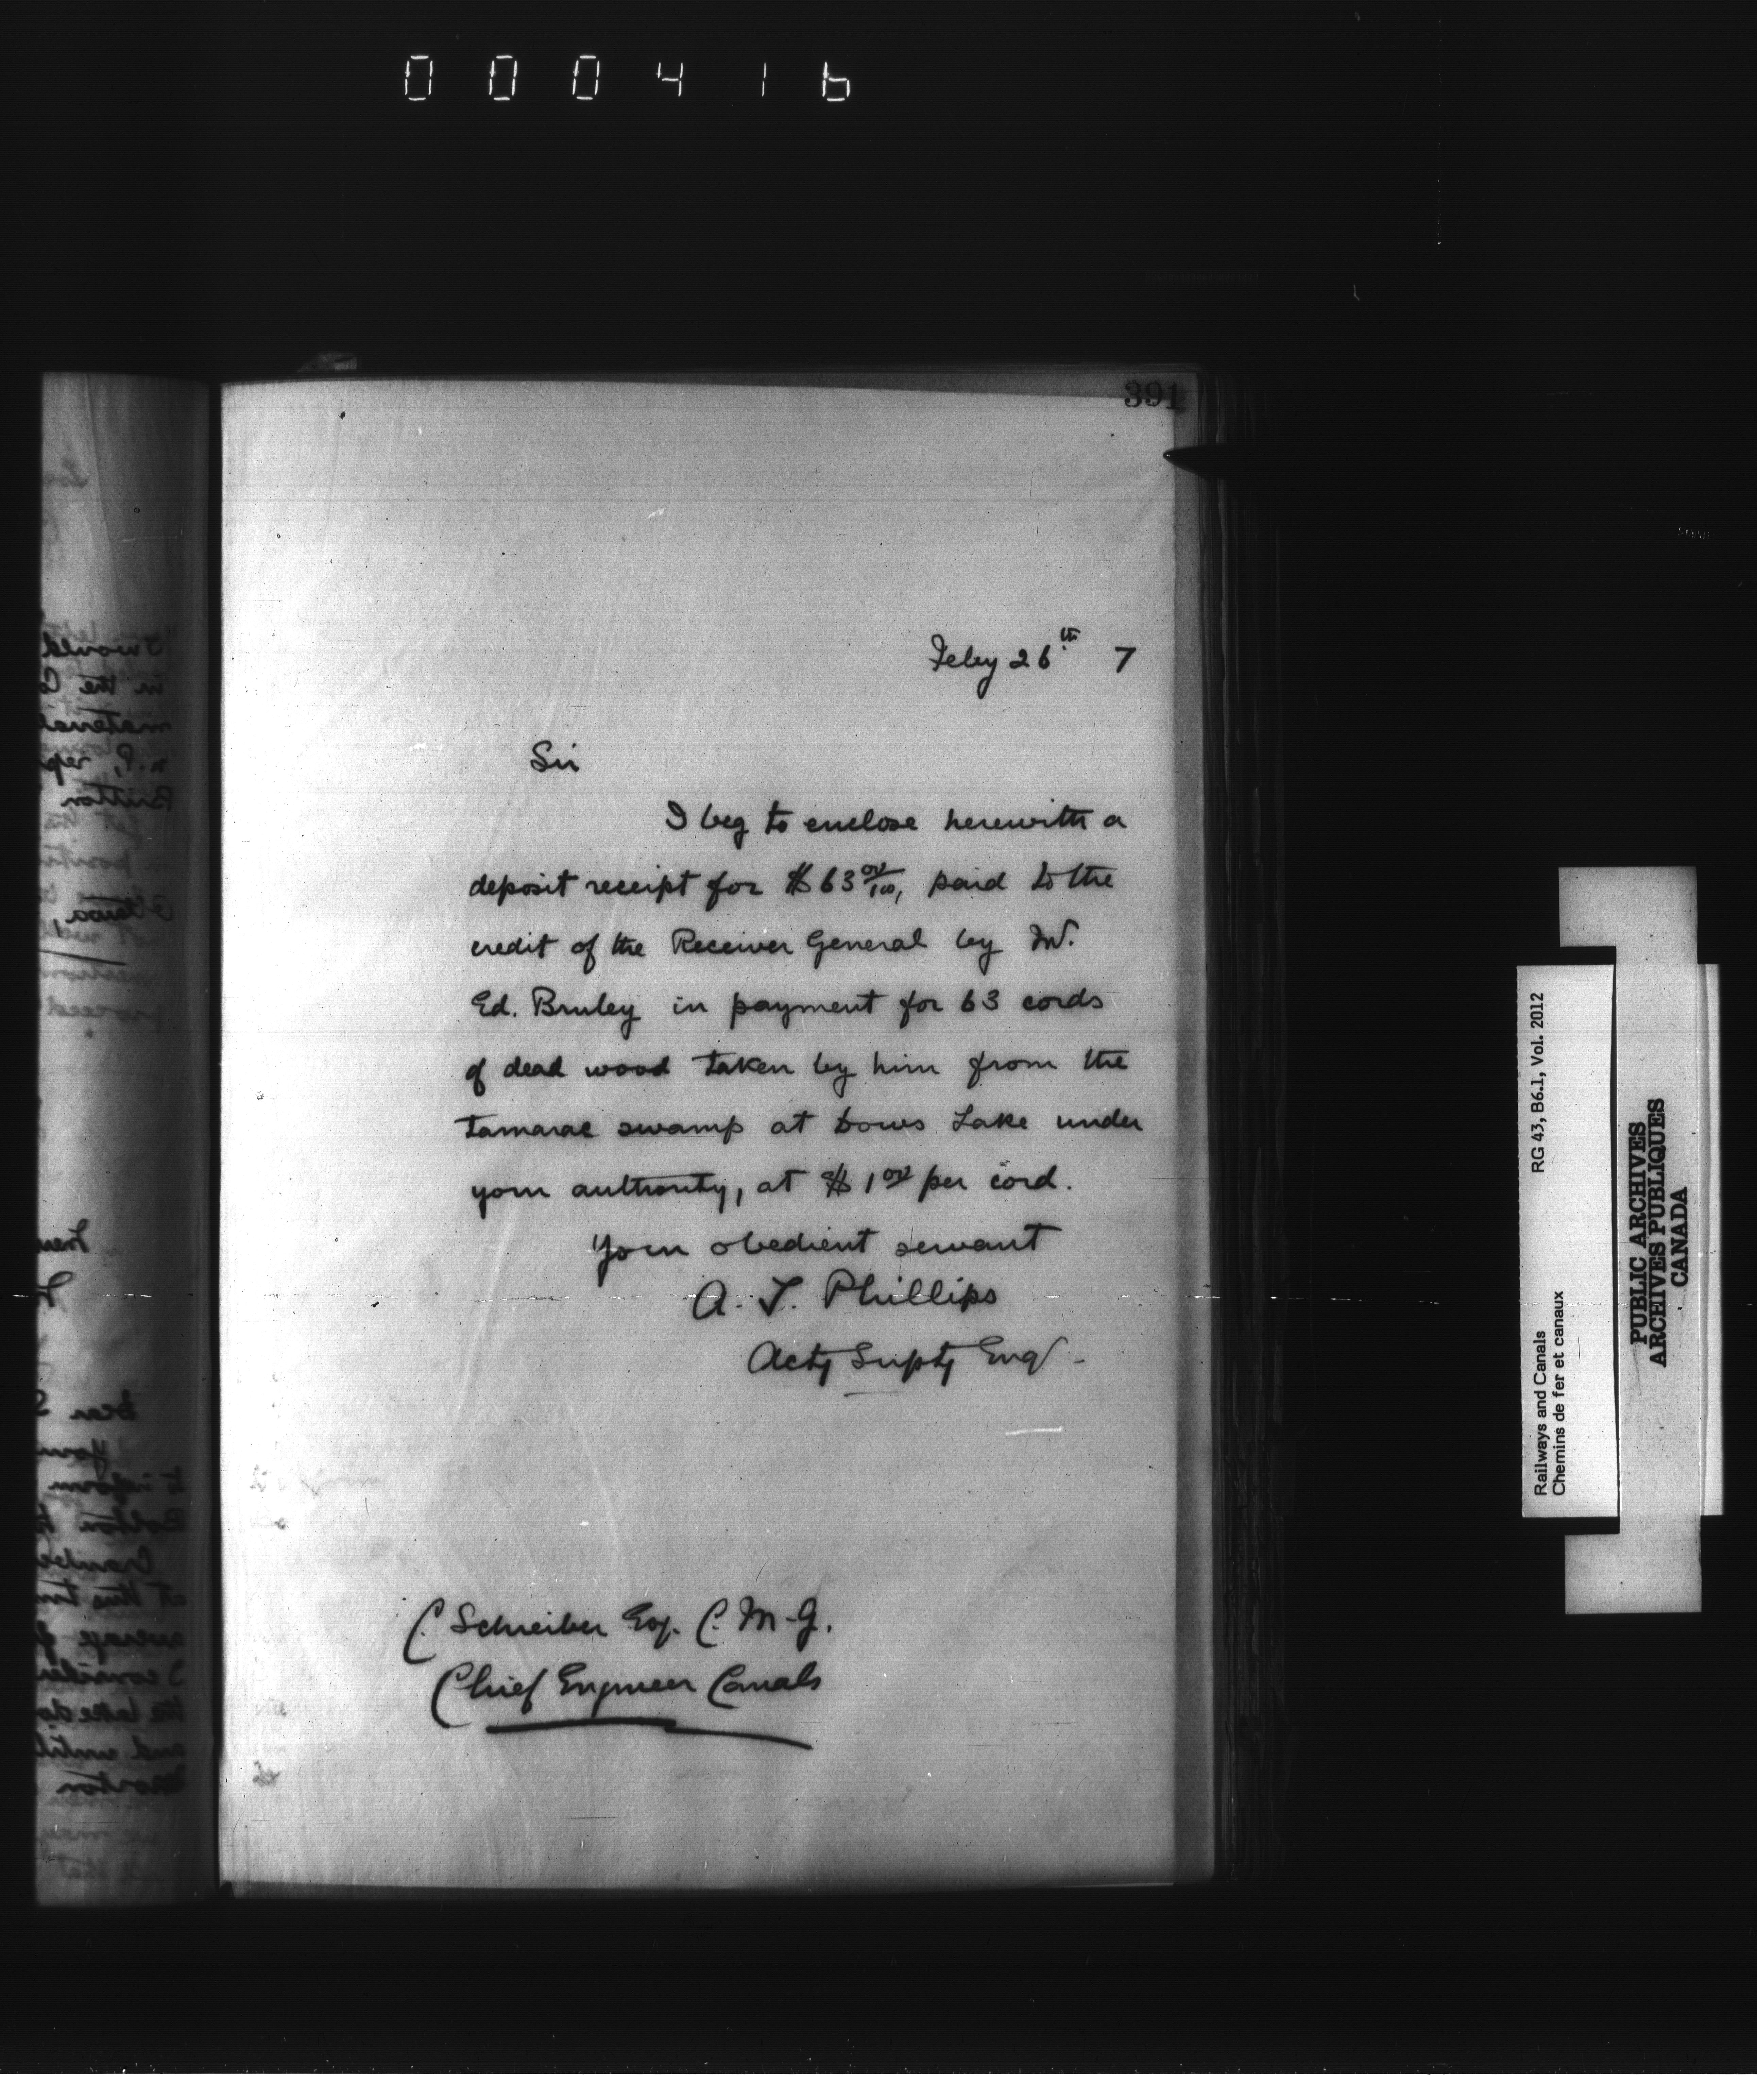 000416
391
Feby 26th 7
Sir
I beg to enclose herewith a
deposit receipt for $63 00/100, paid to the
credit of the Receiver General by Mr.
Ed. Bruley in payment for 63 cords
of dead wood taken by him from the
tamarac swamp at Dows Lake under
your authority, at $1 00 per cord.
Your obedient servant
A. T. Phillips
Actg Suptg Engr
C Schreiber Esq. C. M. G.
Chief Engineer Canals
Railways and Canals RG 43, B6.1, Vol. 2012
Chemins de fer et canaux
PUBLIC ARCHIVES
ARCHIVES PUBLIQUES
CANADA